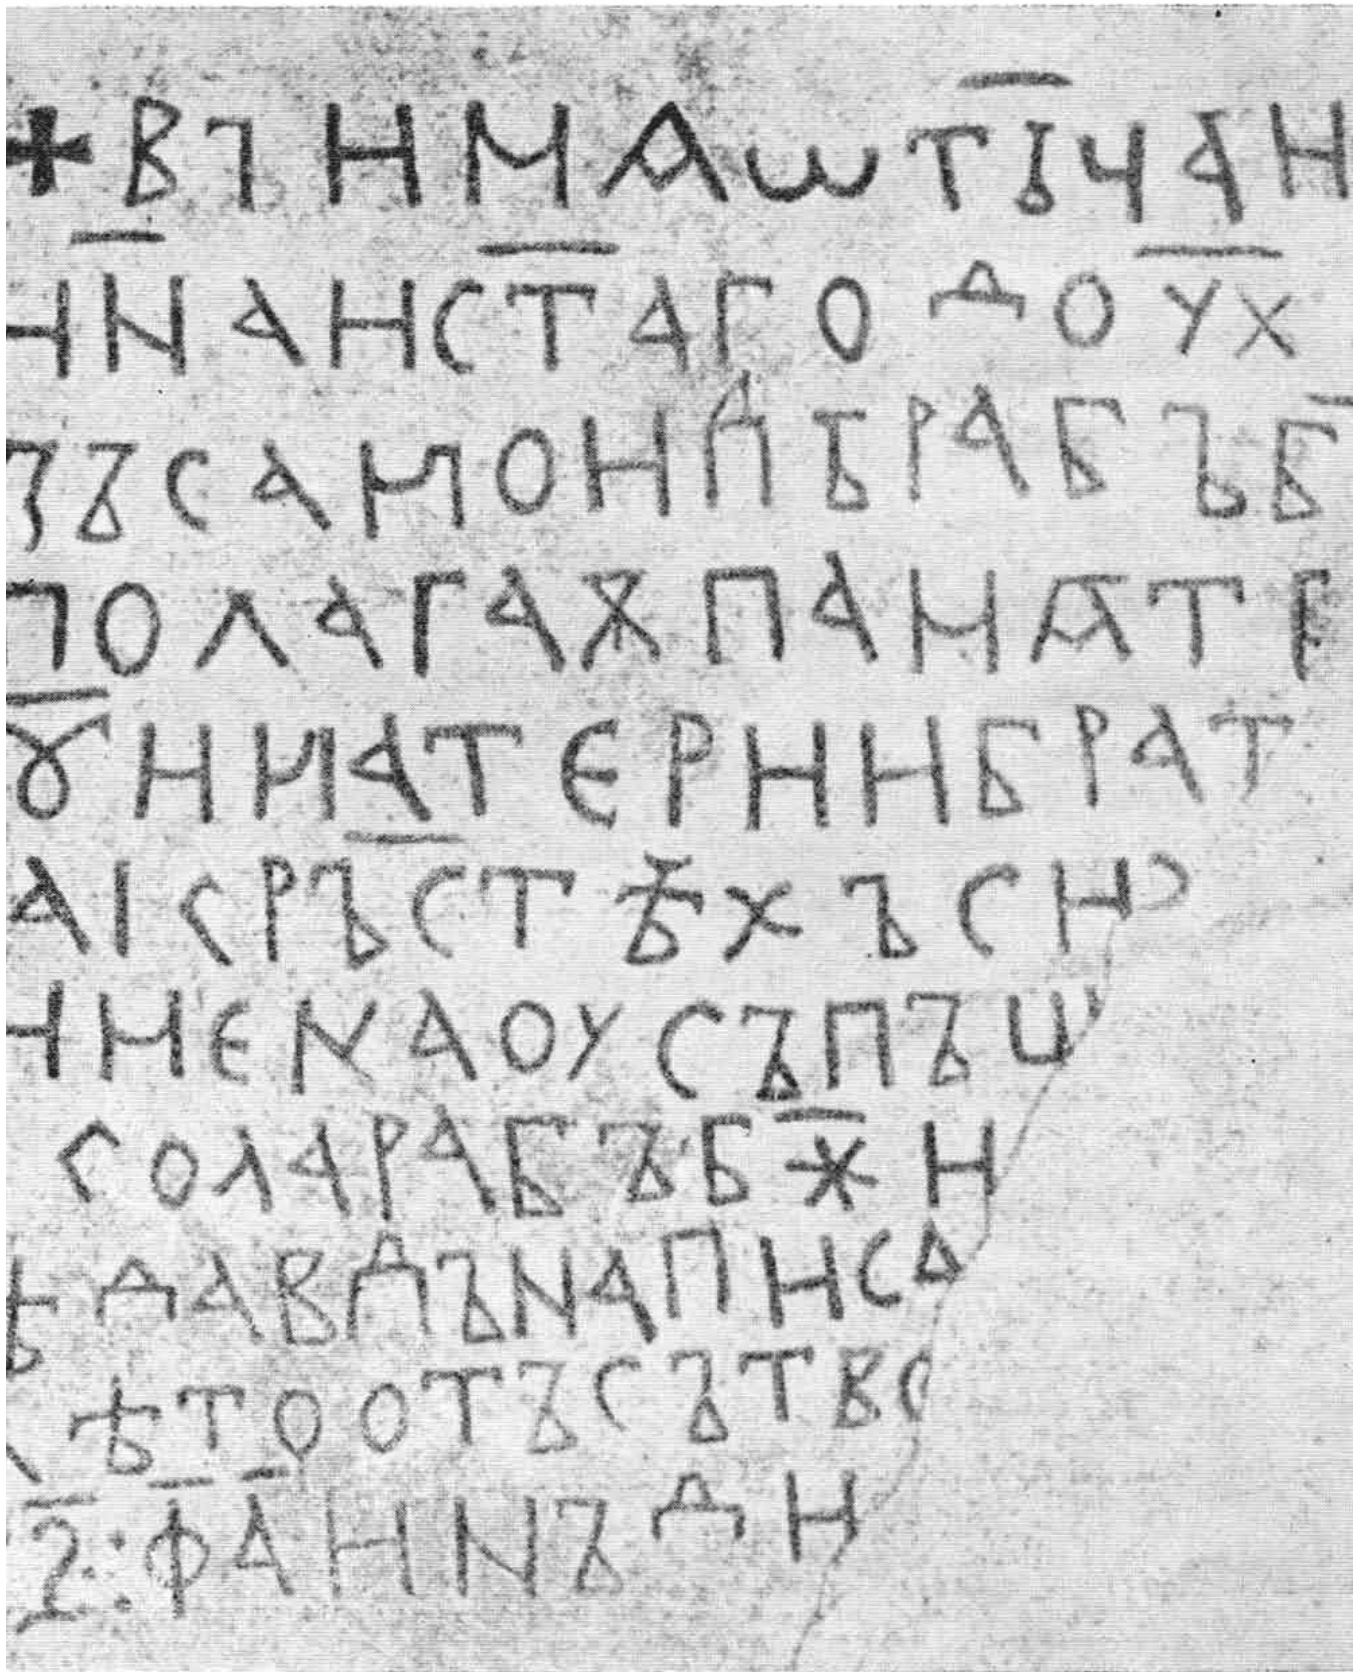 + ВЪ ИМѦ ѠТЬЧА И
И НА И СТАГО ДОУХ
ЗЪ САМОИЛЪ РАБЪ Б
ПОЛАГАѪ ПАМѦТ
ꙊИ МАТЕРИ И БРАТ
А І СРЪСТѢХЪ СИ
ИМЕНА ОУСЪПЪШ
СОЛА РАБЪ БЖИ
Ѣ ДАВДЪ НАПИСА
ѢТО ОТЪ СЪТВО
҂Ꙅ : Ф А ИНЪДИ